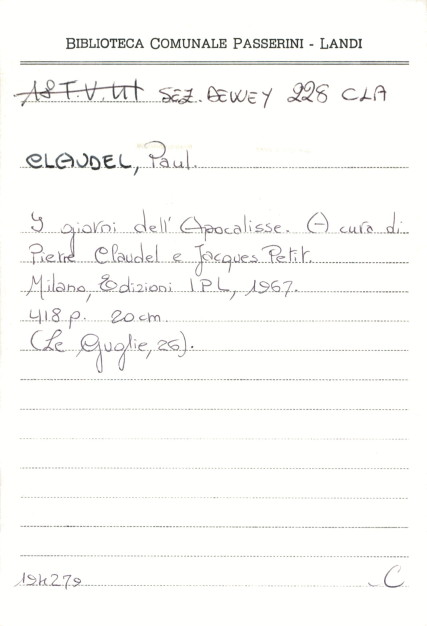 BIBLIOTECA COMUNALE PASSERINI - LANDI
SEZ. DEWEY 228 CLA
CLAUDEL, Paul.
I giorni dell'Apocalisse. A cura di
Pierre Claudel e Jacques Petit.
Milano, Edizioni IPL, 1967.
418 p. 20 cm.
(Le Guglie, 26).
194279
C